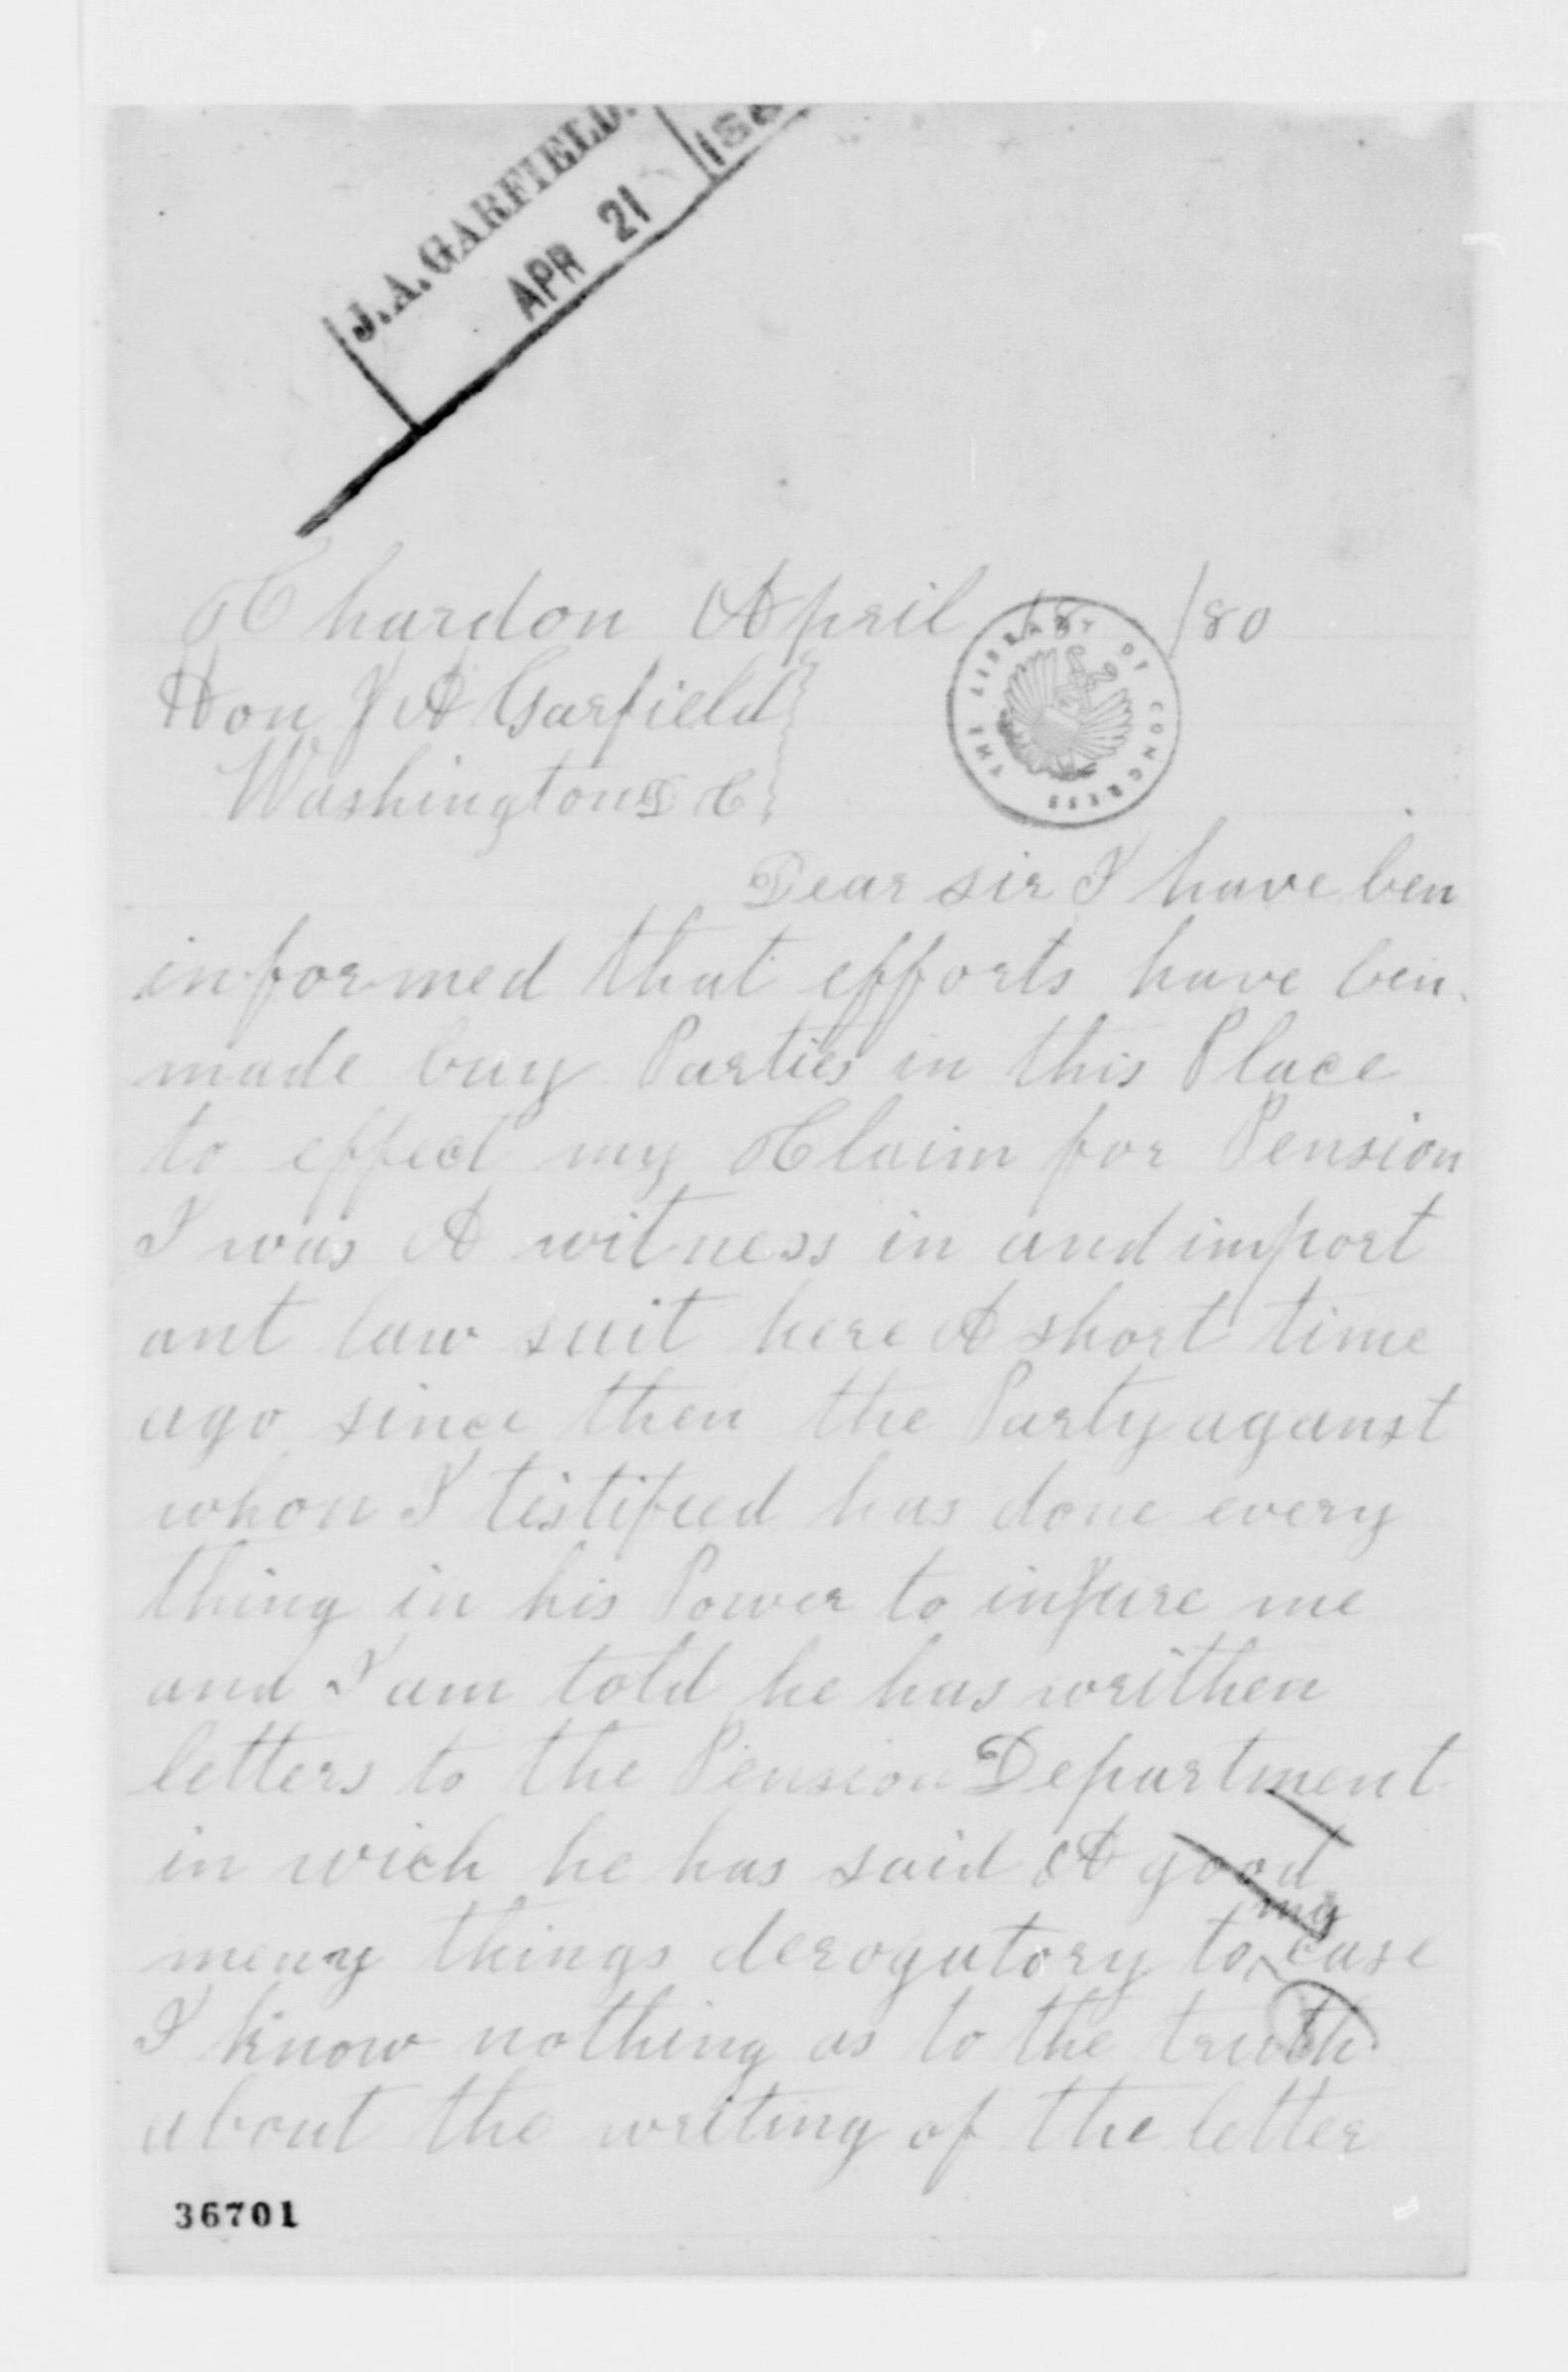 J. A. GARFIELD.
APR 21 188
Chardon April 18 /80
THE LIBRARY OF CONGRESS
Hon J A Garfield
Washington D C
Dear sir I have ben
informed that efforts have ben
made buy Parties in this Place
to effect my Claim for Pension
I was A witness in and import
ant law suit here A short time
ago since then the Party aganst
whon I testified has done every
thing in his Power to injure me
and I am told he has writhen
letters to the Pension Department
in wich he has said A good
meny things derogutory to my case
I know nothing as to the truth
about the writing of the letter
36701